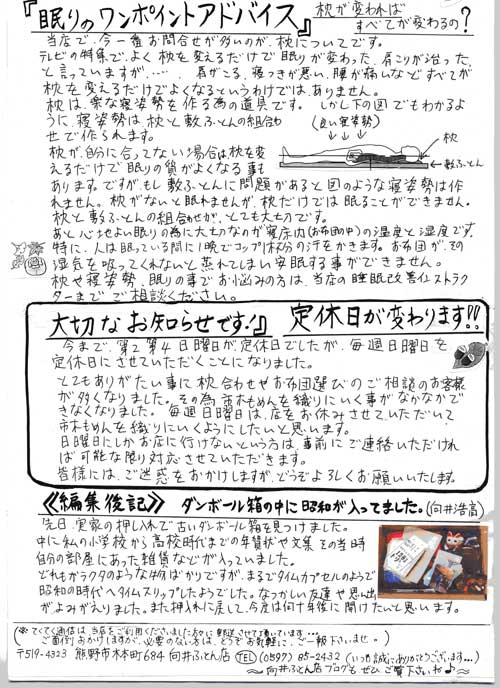 『眠りのワンポイントアドバイス』 枕が変われば
すべてが変わるの?
当店で、今一番お問合せが多いのが、枕についてです。
テレビの特集で、よく枕を変えるだけで眠りが変わった、肩こりが治った、
と言っていますが、・・・・・ 肩がこる、寝つきが悪い、腰が痛いなどすべてが
枕を変えるだけでよくなるというわけでは、ありません。
枕は、楽な寝姿勢を作る為の道具です。しかし下の図でもわかるよ
うに、寝姿勢は、枕と敷ふとんの組合わ
せで作られます。
(良い寝姿勢)
枕
敷ふとん
枕が、自分に合ってない場合は枕を変
えるだけで眠りの質がよくなる事も
あります。ですが、もし敷ふとんに問題があると図のような寝姿勢は作
れません。枕がないと眠れませんが、枕だけでは眠ることができません。
枕と敷ふとんの組合わせが、とても大切です。
あと心地よい眠りの為に大切なのが寝床内(お布団の中)の温度と湿度です。
特に、人は眠っている間に1晩でコップ1杯分の汗をかきます。お布団が、その
湿気を吸ってくれないと蒸れてしまい安眠する事ができません。
枕や寝姿勢、眠りの事でお悩みの方は、当店の睡眠改善インストラク
ターまでご相談ください。
大切なお知らせです!』 定休日が変わります!!
今まで、第2第4日曜日が定休日でしたが、毎週日曜日を
定休日にさせていただくことになりました。
とてもありがたい事に枕合わせやお布団選びのご相談のお客様
が多くなりました。その為市木もめんを織りにいく事がなかなかで
きなくなりました。毎週日曜日は、店をお休みさせていただいて
市木もめんを織りにいくようにしたいと思います。
日曜日にしかお店に行けないという方は、事前にご連絡いただけれ
ば可能な限り対応させていただきます。
皆様には、ご迷惑をおかけしますが、どうぞよろしくお願いいたします。
《編集後記》 ダンボール箱の中に昭和が入ってました。(向井浩高)
先日、実家の押し入れで古いダンボール箱を見つけました。
中に私の小学校から高校時代までの年賀状や文集、その当時
自分の部屋にあった雑貨などが入っていました。
どれもガラクタのような物ばかりですが、まるでタイムカプセルのようで
昭和の時代へタイムスリップしたようでした。なつかしい友達や思い出
がよみがえりました。また押入れに戻して、今度は何十年後に開けたいと思います。
(※てくてく通信は、当店をご利用くださいました方々に郵送させて頂いています・・・
ご面倒おかけしますが、必要のない方は、どうぞお気軽に、ご一報下さいませ。)
〒519-4323 熊野市木本町684 向井ふとん店 TEL (0597) 85-2432 (いつも誠にありがとうございます・・・)
〜向井ふとん店ブログもぜひご覧下さいね♪〜